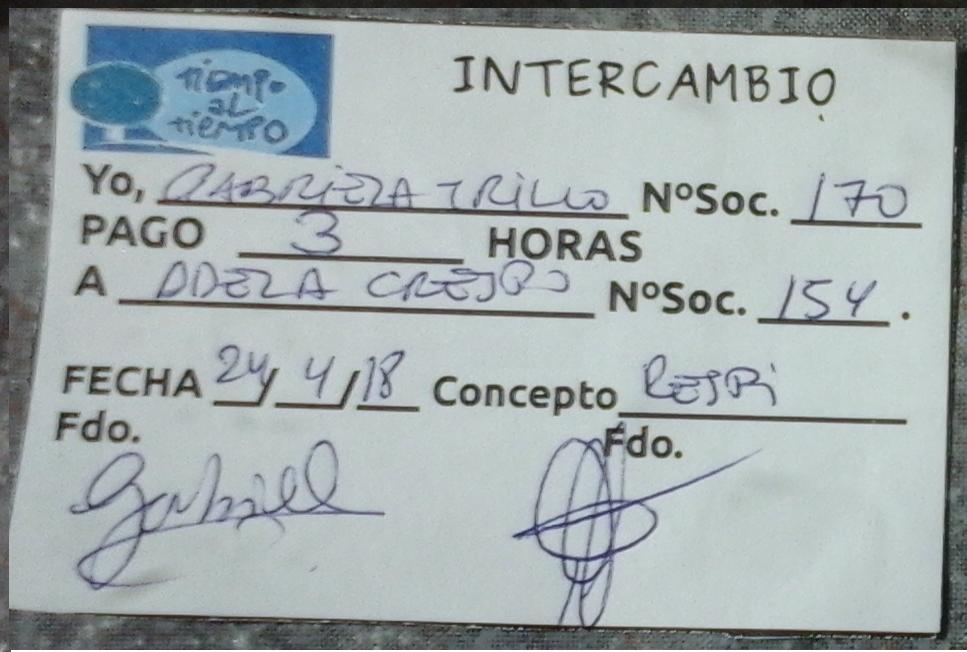 tiempo
al
tiempo
INTERCAMBIO
Yo, GABRIELA TRILLO NºSoc. 170
PAGO 3 HORAS
A ADELA CRESPO NºSoc. 154.
FECHA 24/4/18 Concepto
Fdo. Fdo.